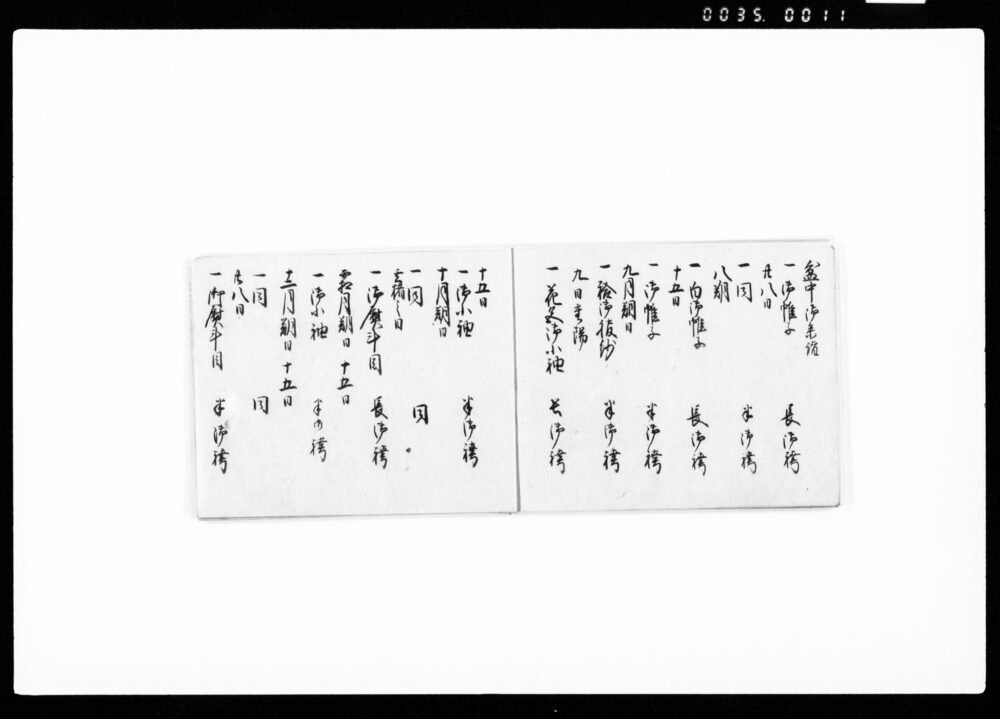 0035. 0011
盆中御参詣
一 御帷子 長御袴
廿八日
一 同 半御袴
八朔
一 白御帷子 長御袴
十五日
一 御帷子 半御袴
九月朔日
一 袷御服紗 半御袴
九日重陽
一 花色御小袖 長御袴
十五日
一 御小袖 半御袴
十月朔日
一 同 同
玄猪之日
一 御熨斗目 長御袴
霜月朔日 十五日
一 御小袖 半御袴
十二月朔日 十五日
一 同 同
廿八日
一 御熨斗目 半御袴